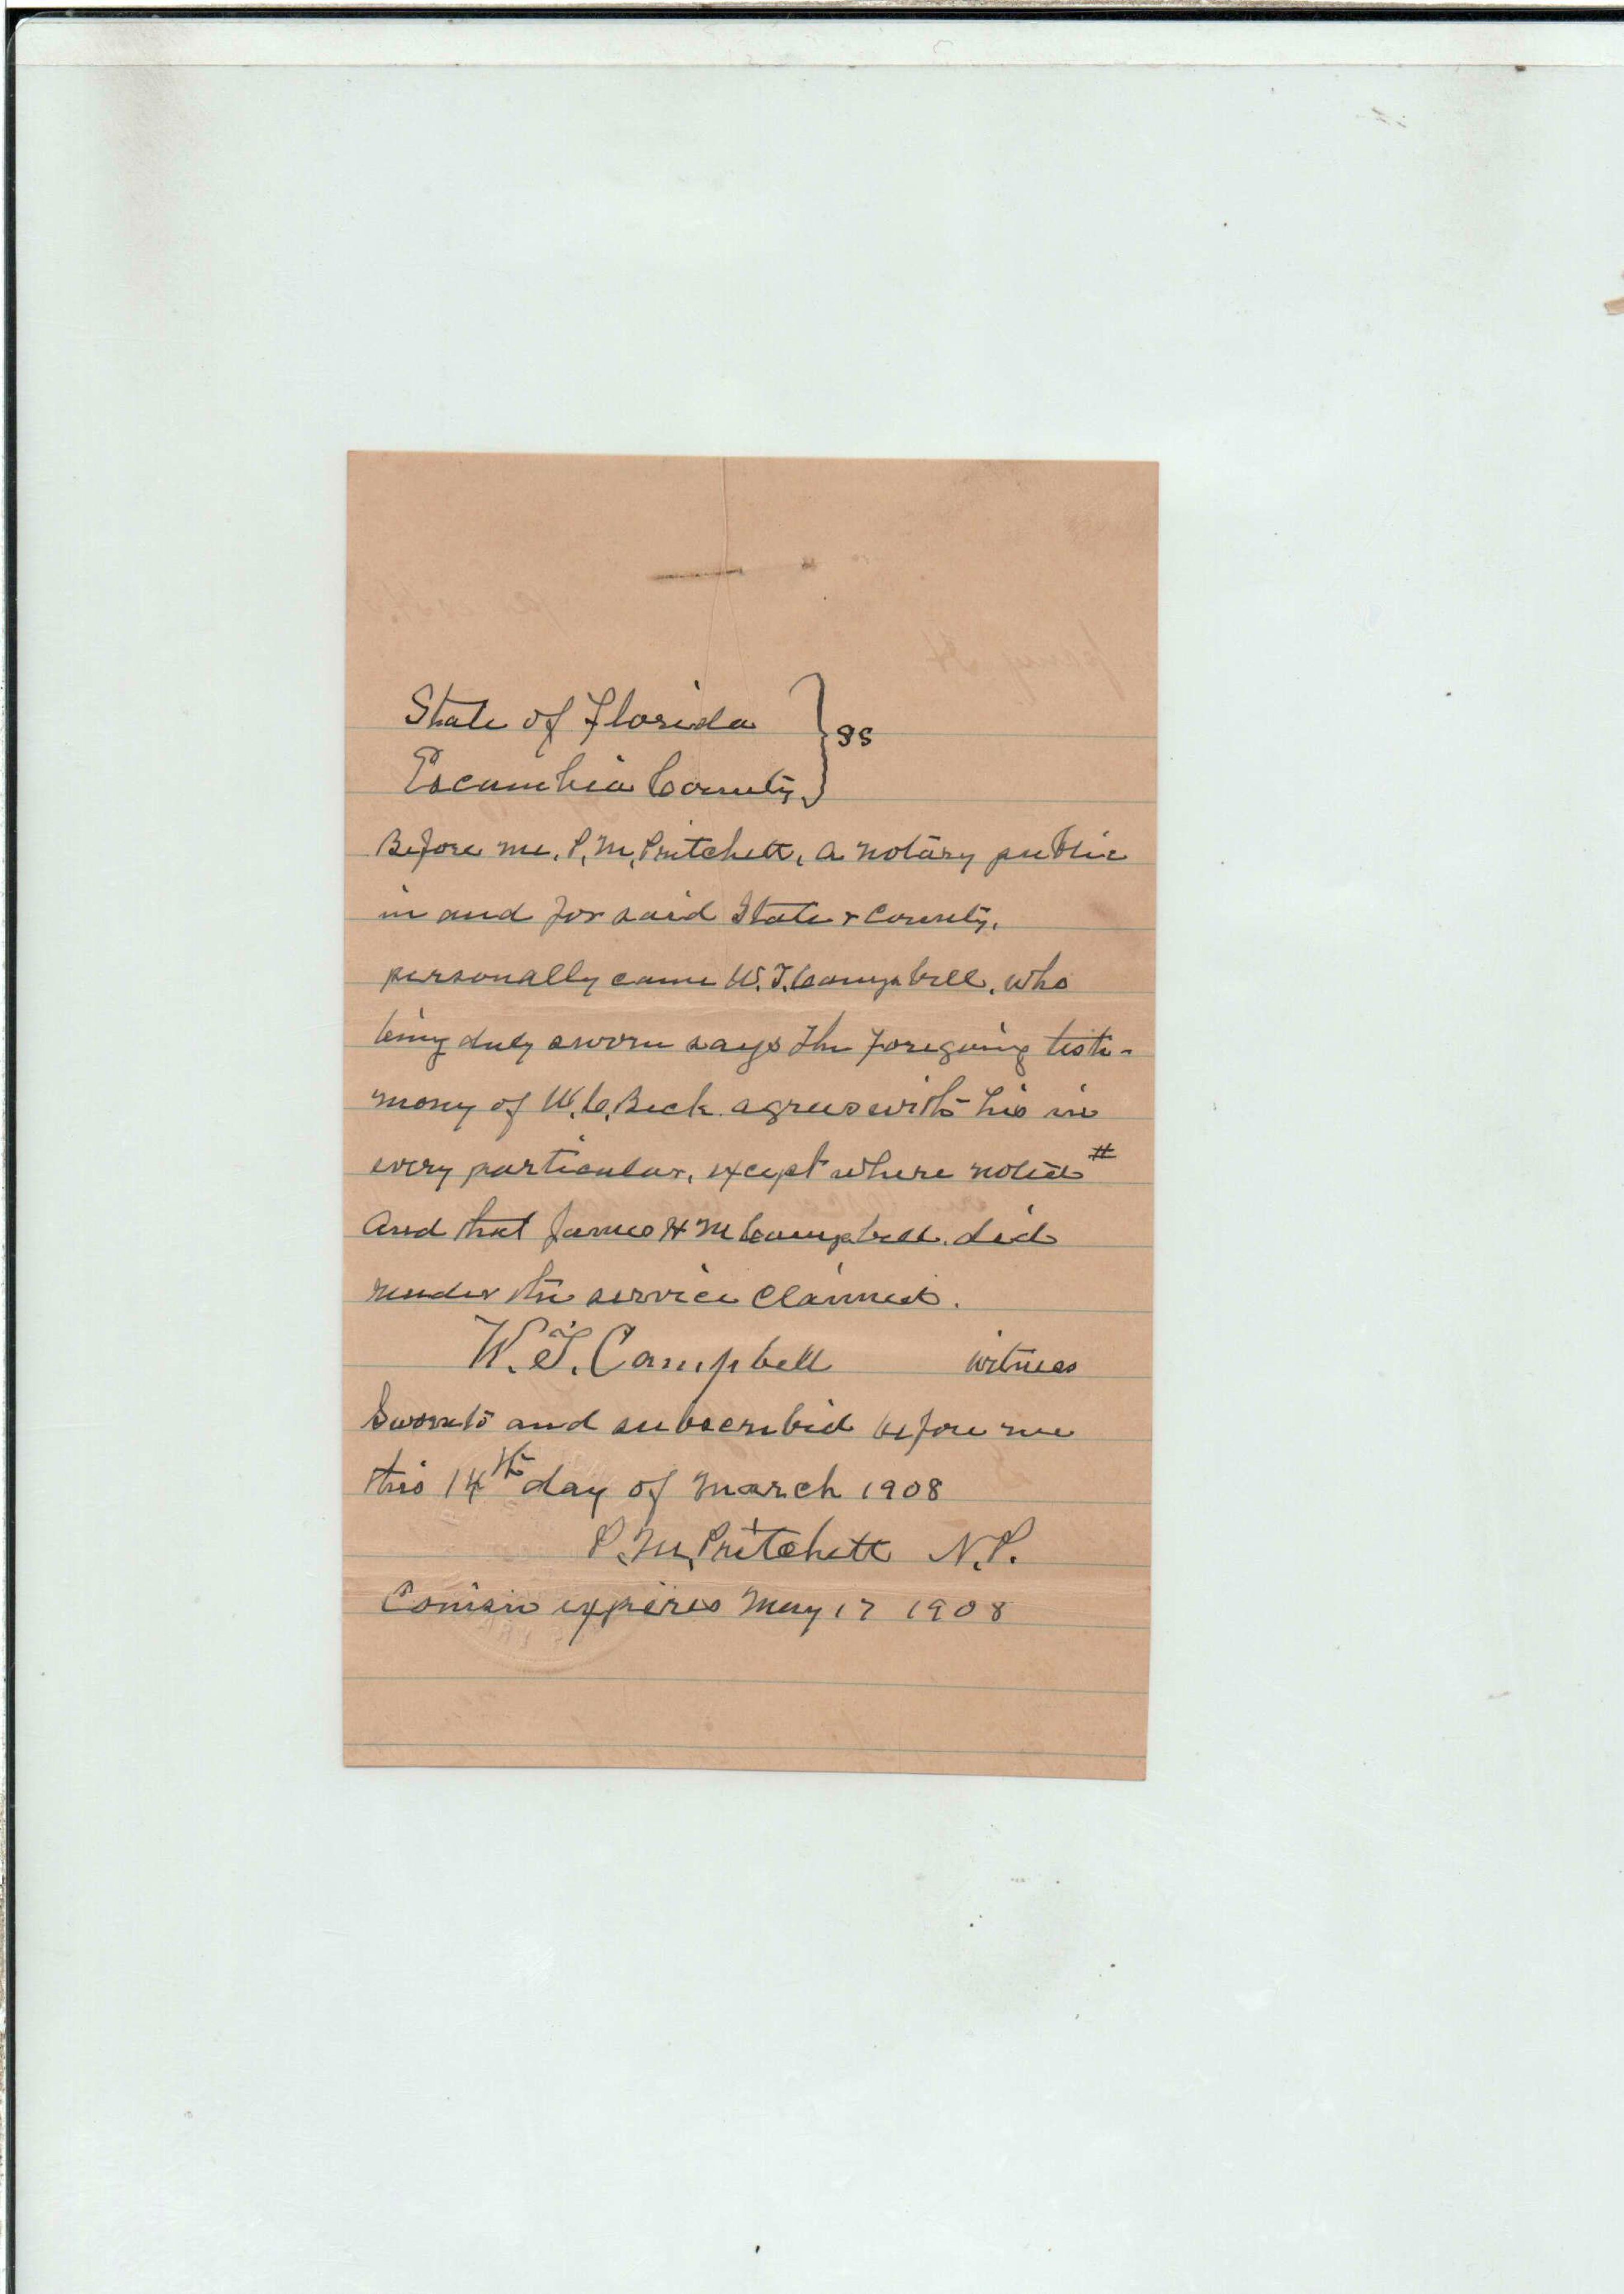 State of Florida } ss
Escambia County }
Before me, P. M. Pritchett, a notary public
in and for said State & County,
personally came W. T. Campbell, who
being duly sworn says the foregoing testi-
mony of W. C. Beck agrees with his in
every particular, except where noted #
And that James H M Campbell did
render the service claimed.
W. T. Campbell witness
Sworn to and subscribed before me
this 14th day of March 1908
P. M. Pritchett N.P.
expires May 17 1908